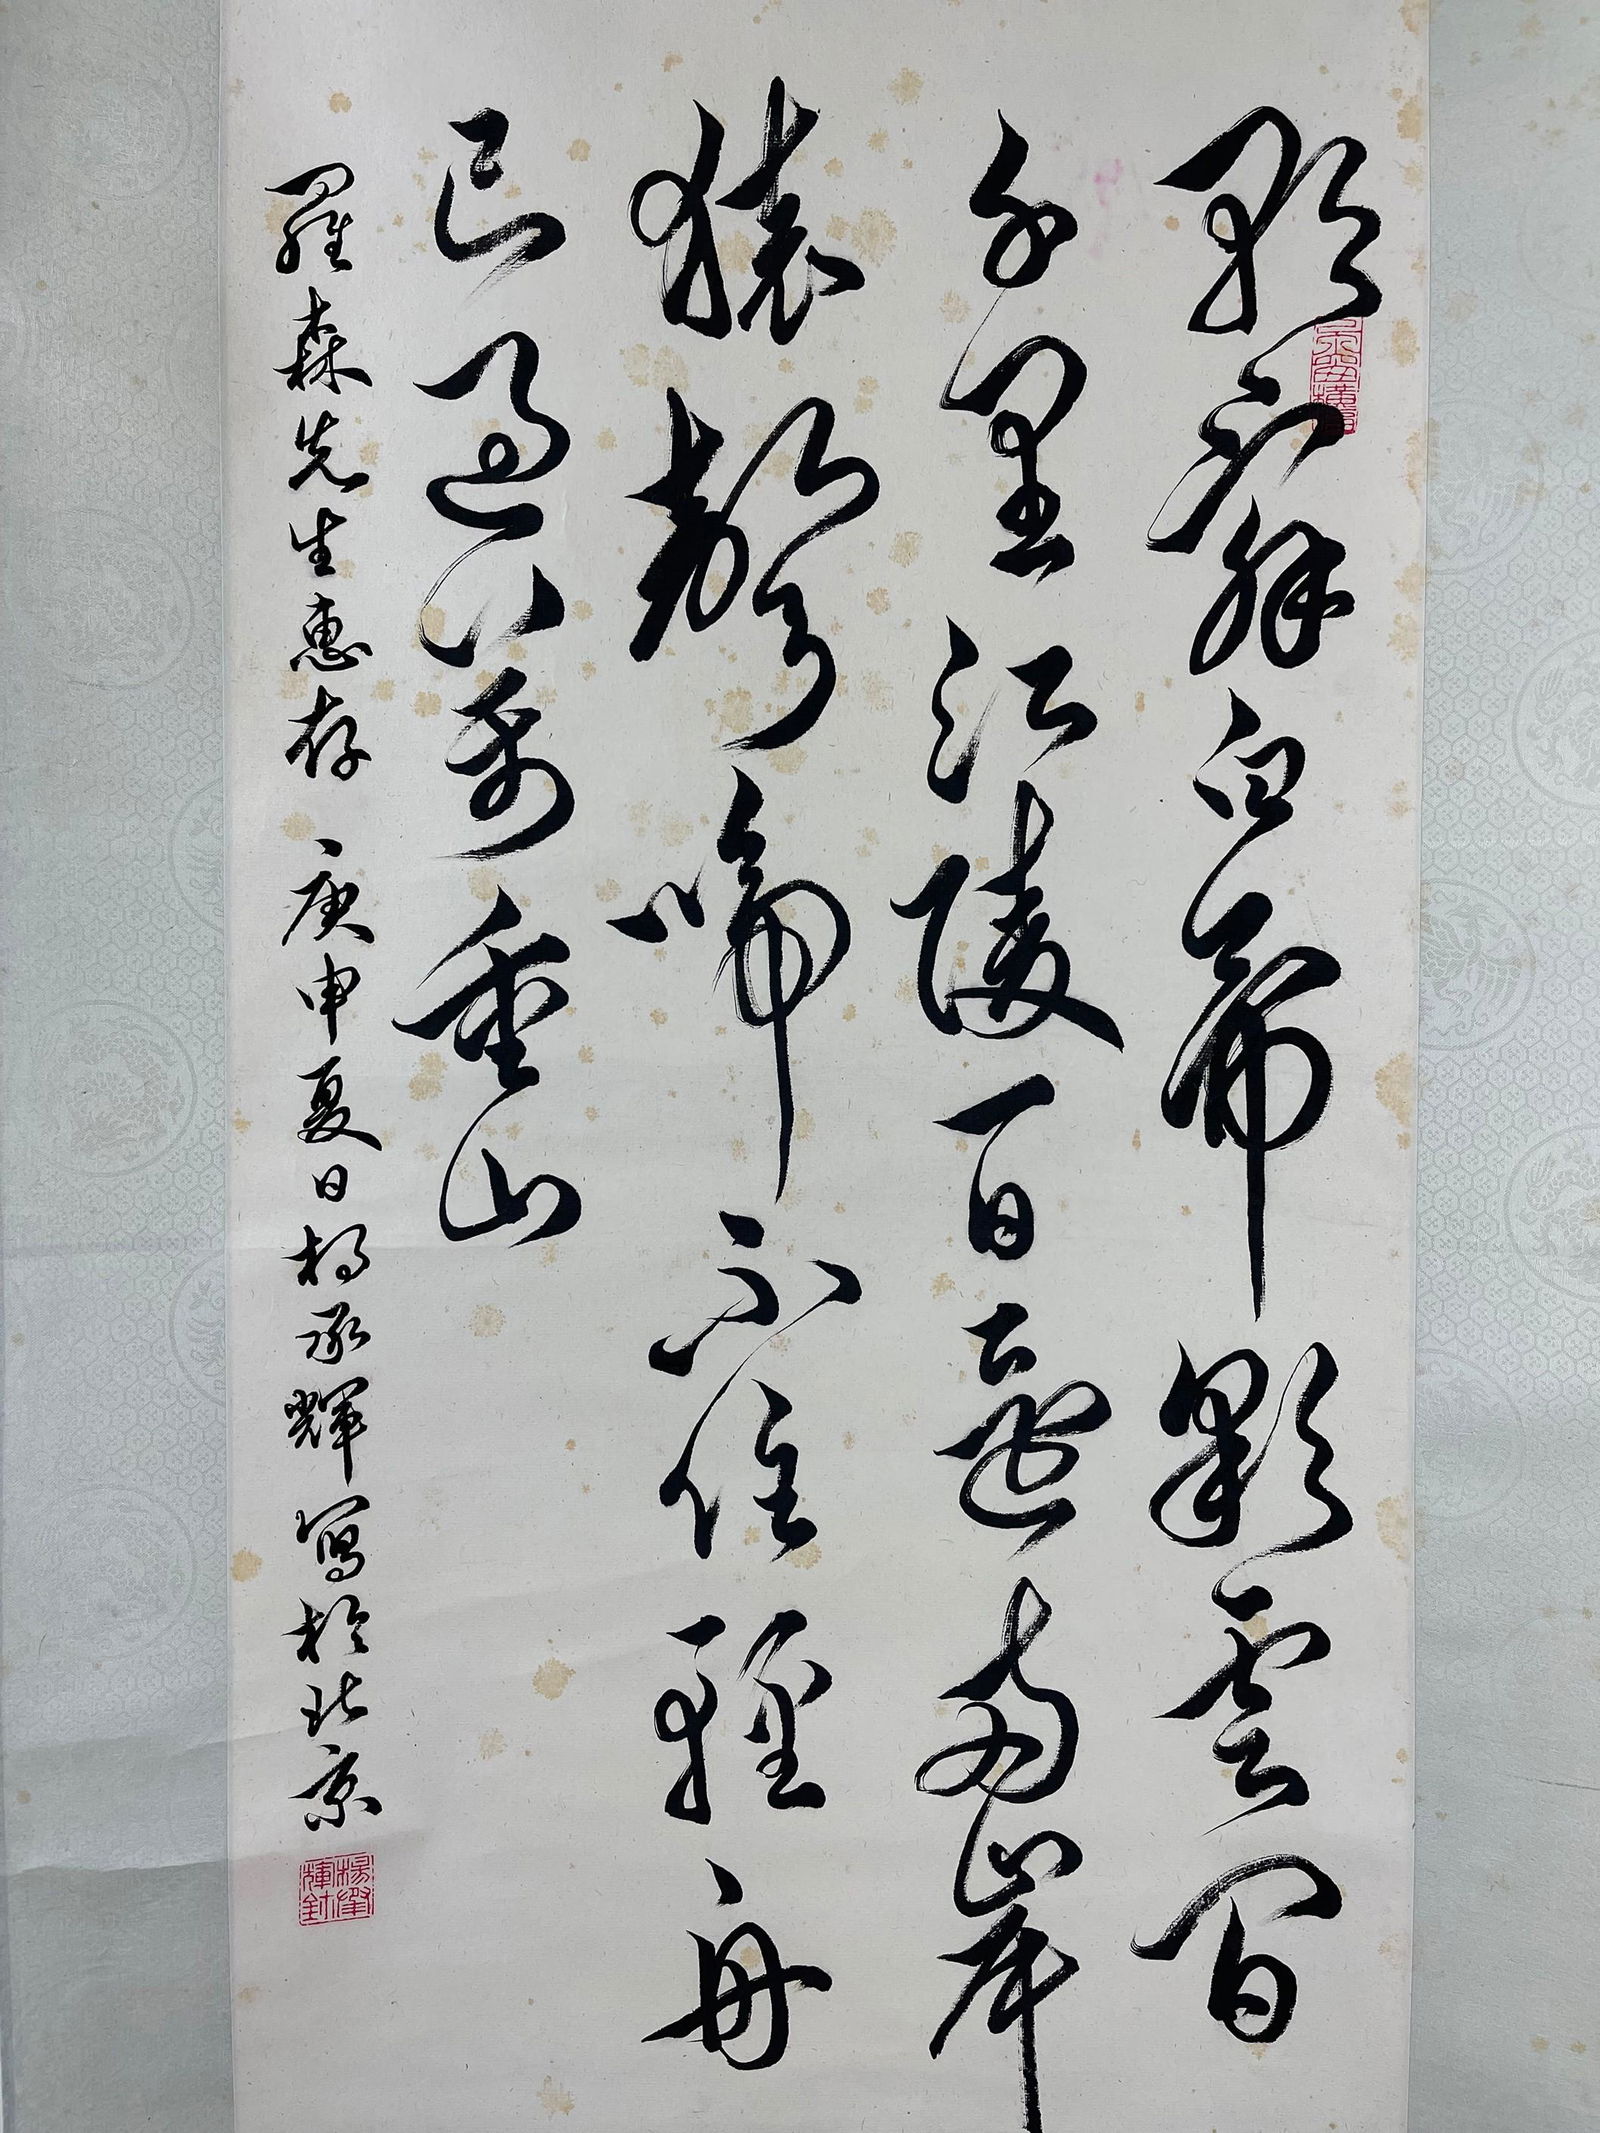 朝辭白帝彩雲間
千里江陵一日還兩岸
猿聲啼不住輕舟
已過萬重山
羅森先生惠存 庚申夏日楊承輝寫於北京